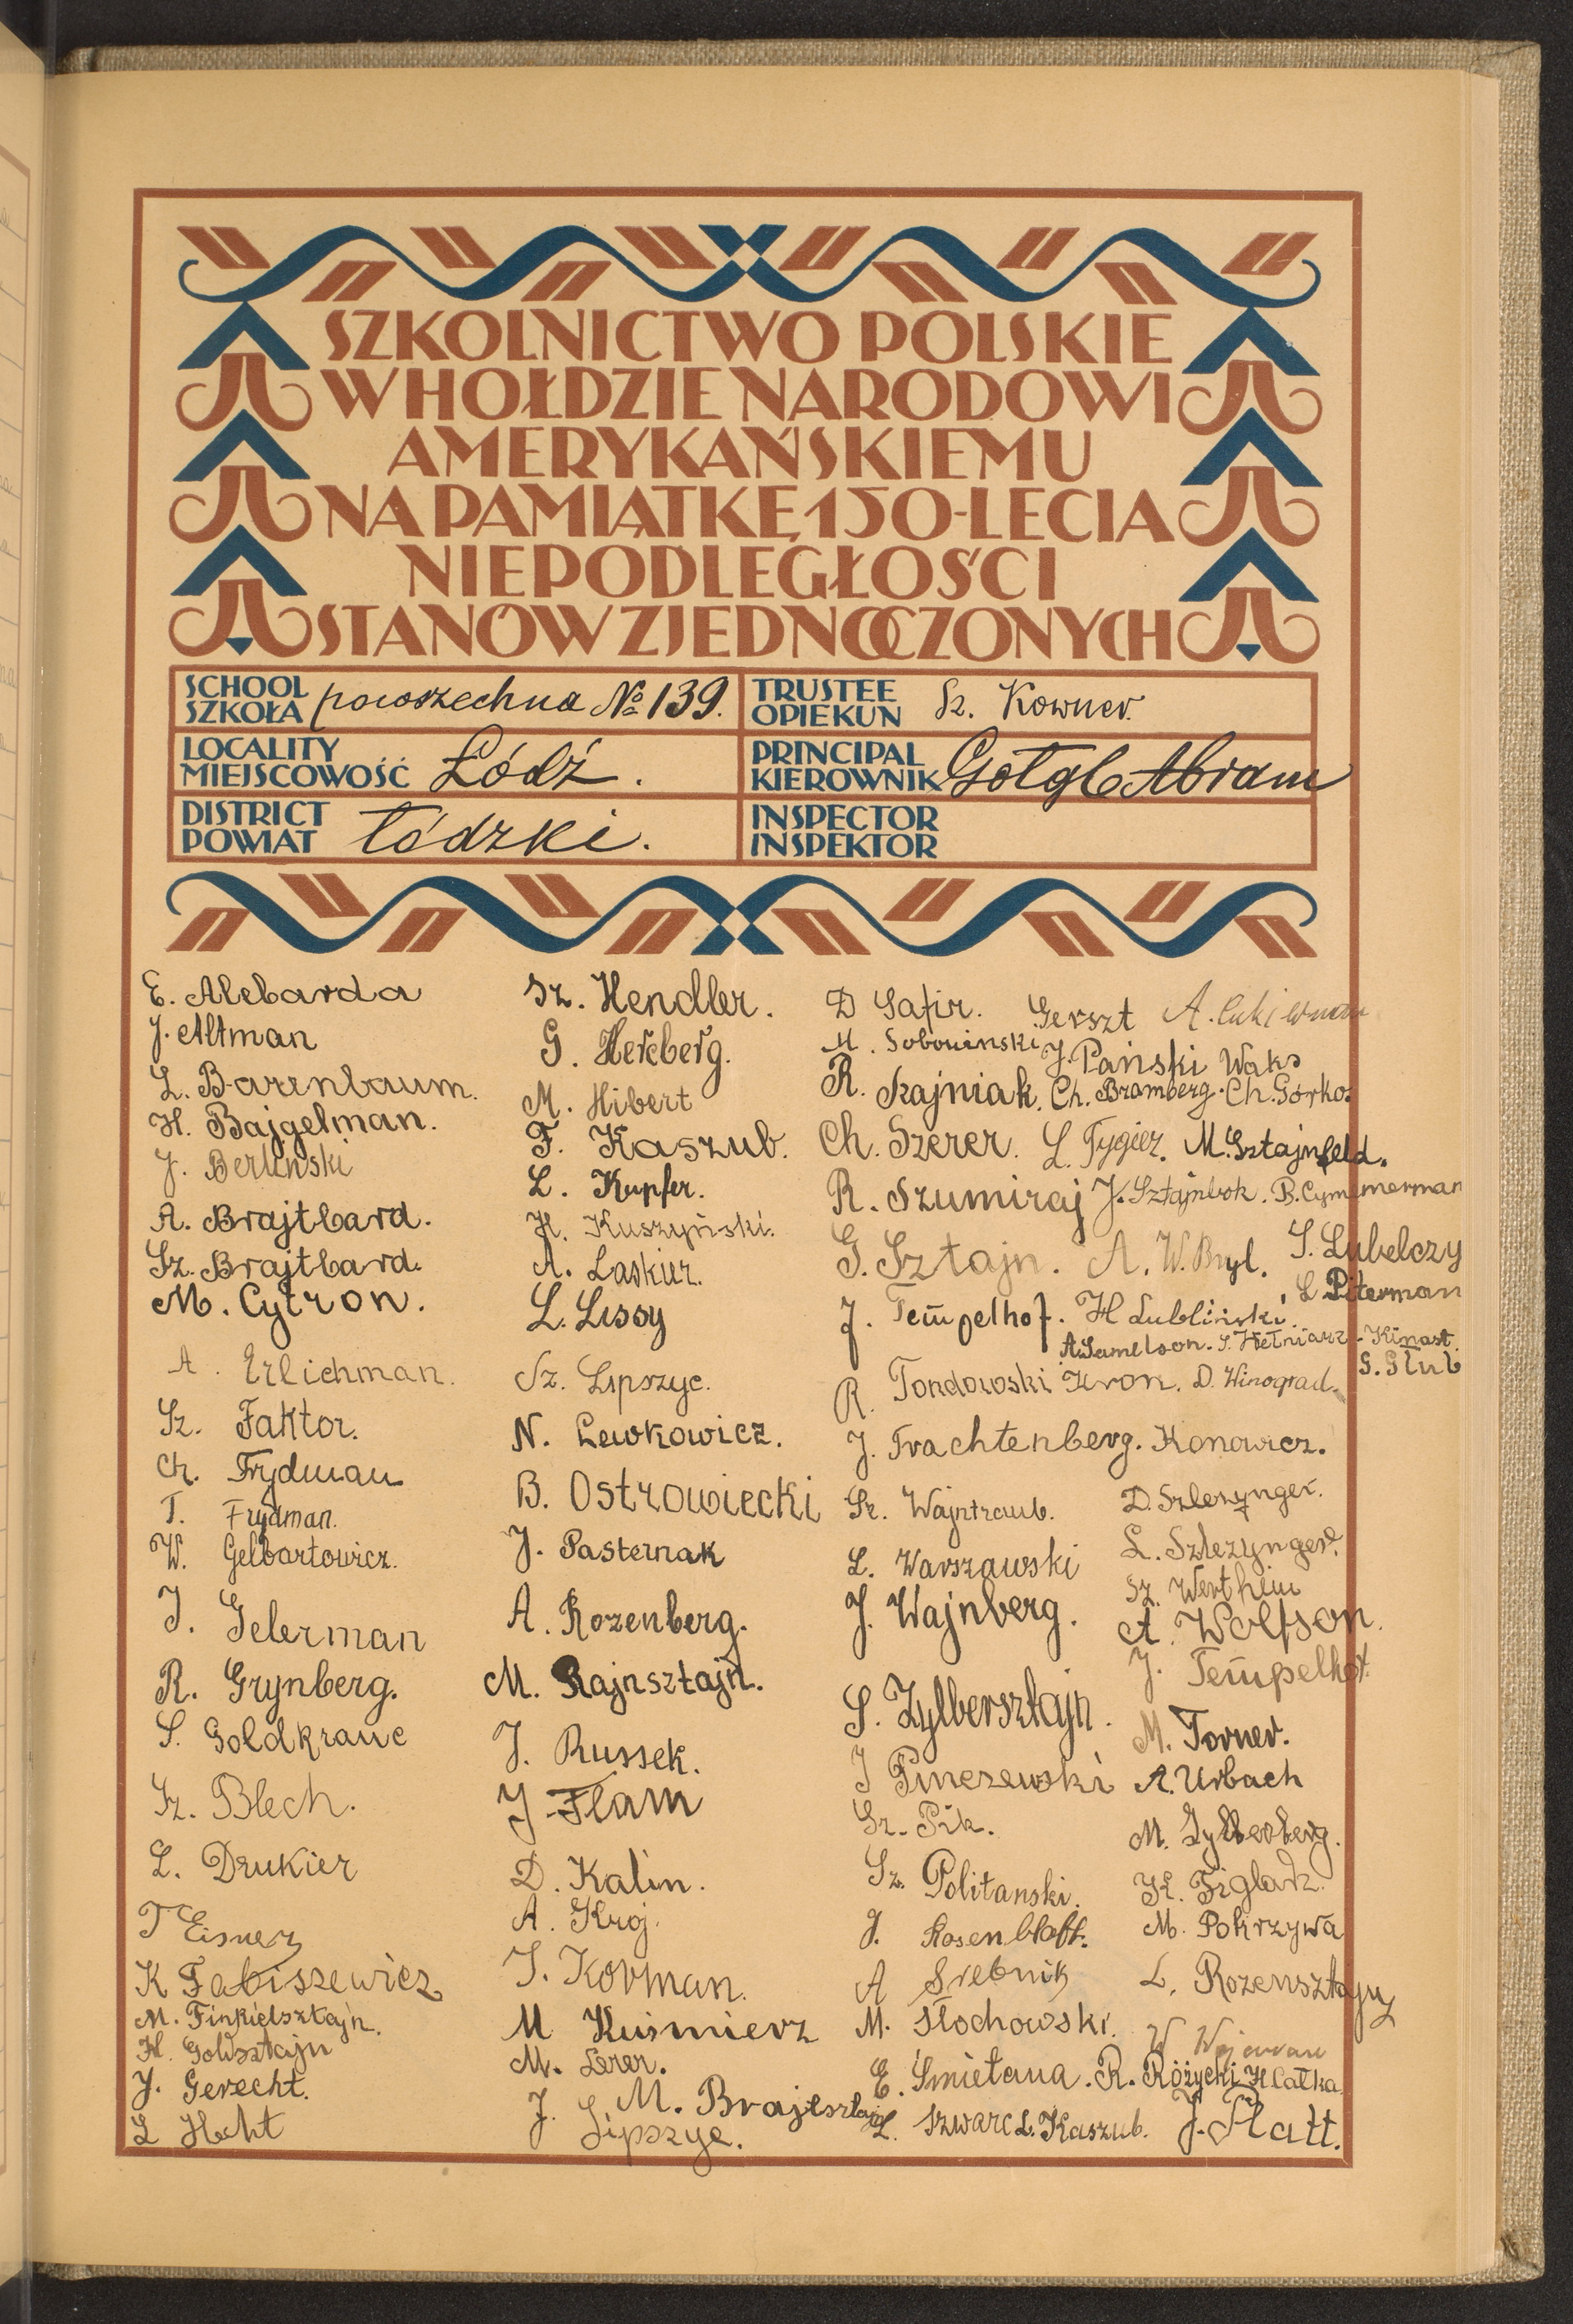 SZKOLNICTWO POLSKIE
W HOŁDZIE NARODOWI
AMERYKAŃSKIEMU
NA PAMIĄTKĘ 150-LECIA
NIEPODLEGŁOŚCI
STANÓW ZJEDNOCZONYCH
SCHOOL
SZKOŁA powszechna № 139.
TRUSTEE
OPIEKUN Sz. Kowner.
LOCALITY
MIEJSCOWOŚĆ Łódź.
PRINCIPAL
KIEROWNIK Abram
DISTRICT
POWIAT Łódzki.
INSPECTOR
INSPEKTOR
E. Alebarda
J. Altman
L. Barenbaum.
H. Bajgelman.
J. Berlinski
A. Brajtbard.
Sz. Brajtbard.
M. Cytron.
A. Erlichman.
Sz. Faktor.
Ch. Frydman
T. Frydman.
W. Gelbartowicz.
J. Gelerman
R. Grynberg.
S. Goldkranc
Sz. Blech.
L. Drukier
T Eisner
K Fabiszewicz
M. Finkielsztajn.
H. Goldsztajn
J. Gerecht.
L Hecht
Sz. Hendler.
G. Hercberg.
M. Hibert
F. Kaszub.
L. Kupfer.
H. Kuszyński.
A. Laskier.
L. Lissy
Sz. Lipszyc.
N. Lewkowicz.
B. Ostrowiecki
J. Pasternak
A. Rozenberg.
M. Rajnsztajn.
J. Russek.
J. Flam
D. Kalin.
A. Kroj.
J. Korman.
M Kuśmierz
M. Lerer.
M. Brajtsztajn
J. Lipszyc.
D Safir. Gerszt A.
M. Sobowinski J. Pański Waks
R. Szajniak. Ch. Bramberg. Ch. Gorkos
Ch. Szerer. L. Tygier. M. Sztajnfeld.
R. Szumiraj J. Sztajnbok. B. Cymmerman
G. Sztajn. A. W. Bryl. S. Lubelczy
L Piterman
J. Tempelhof. H Lubliński.
A. Samelson. S. Hełniarz - Kinast.
G. Słub
R. Tondowski Kron. D. Winograd.
J. Trachtenberg. Konowicz.
Sz. Wajntraub.
L. Warszawski
J. Wajnberg.
S. Zylbersztajn.
J Pinczewski
Sz. Pik.
Sz. Politanski.
J. Rosenblatt.
A Srebnik
M. Słochowski.
E. Śmietana. R. Różycki H Całka.
L. Szwarc L. Kaszub. J. Płatt.
D. Szlezynger.
L. Szlezynger.
Sz. Wertheim
A. Wolfson.
J. Tempelhof.
M. Torner.
A. Urbach
M. Zylberberg.
K. Figlarz.
M. Pokrzywa
L. Rozensztajn
W